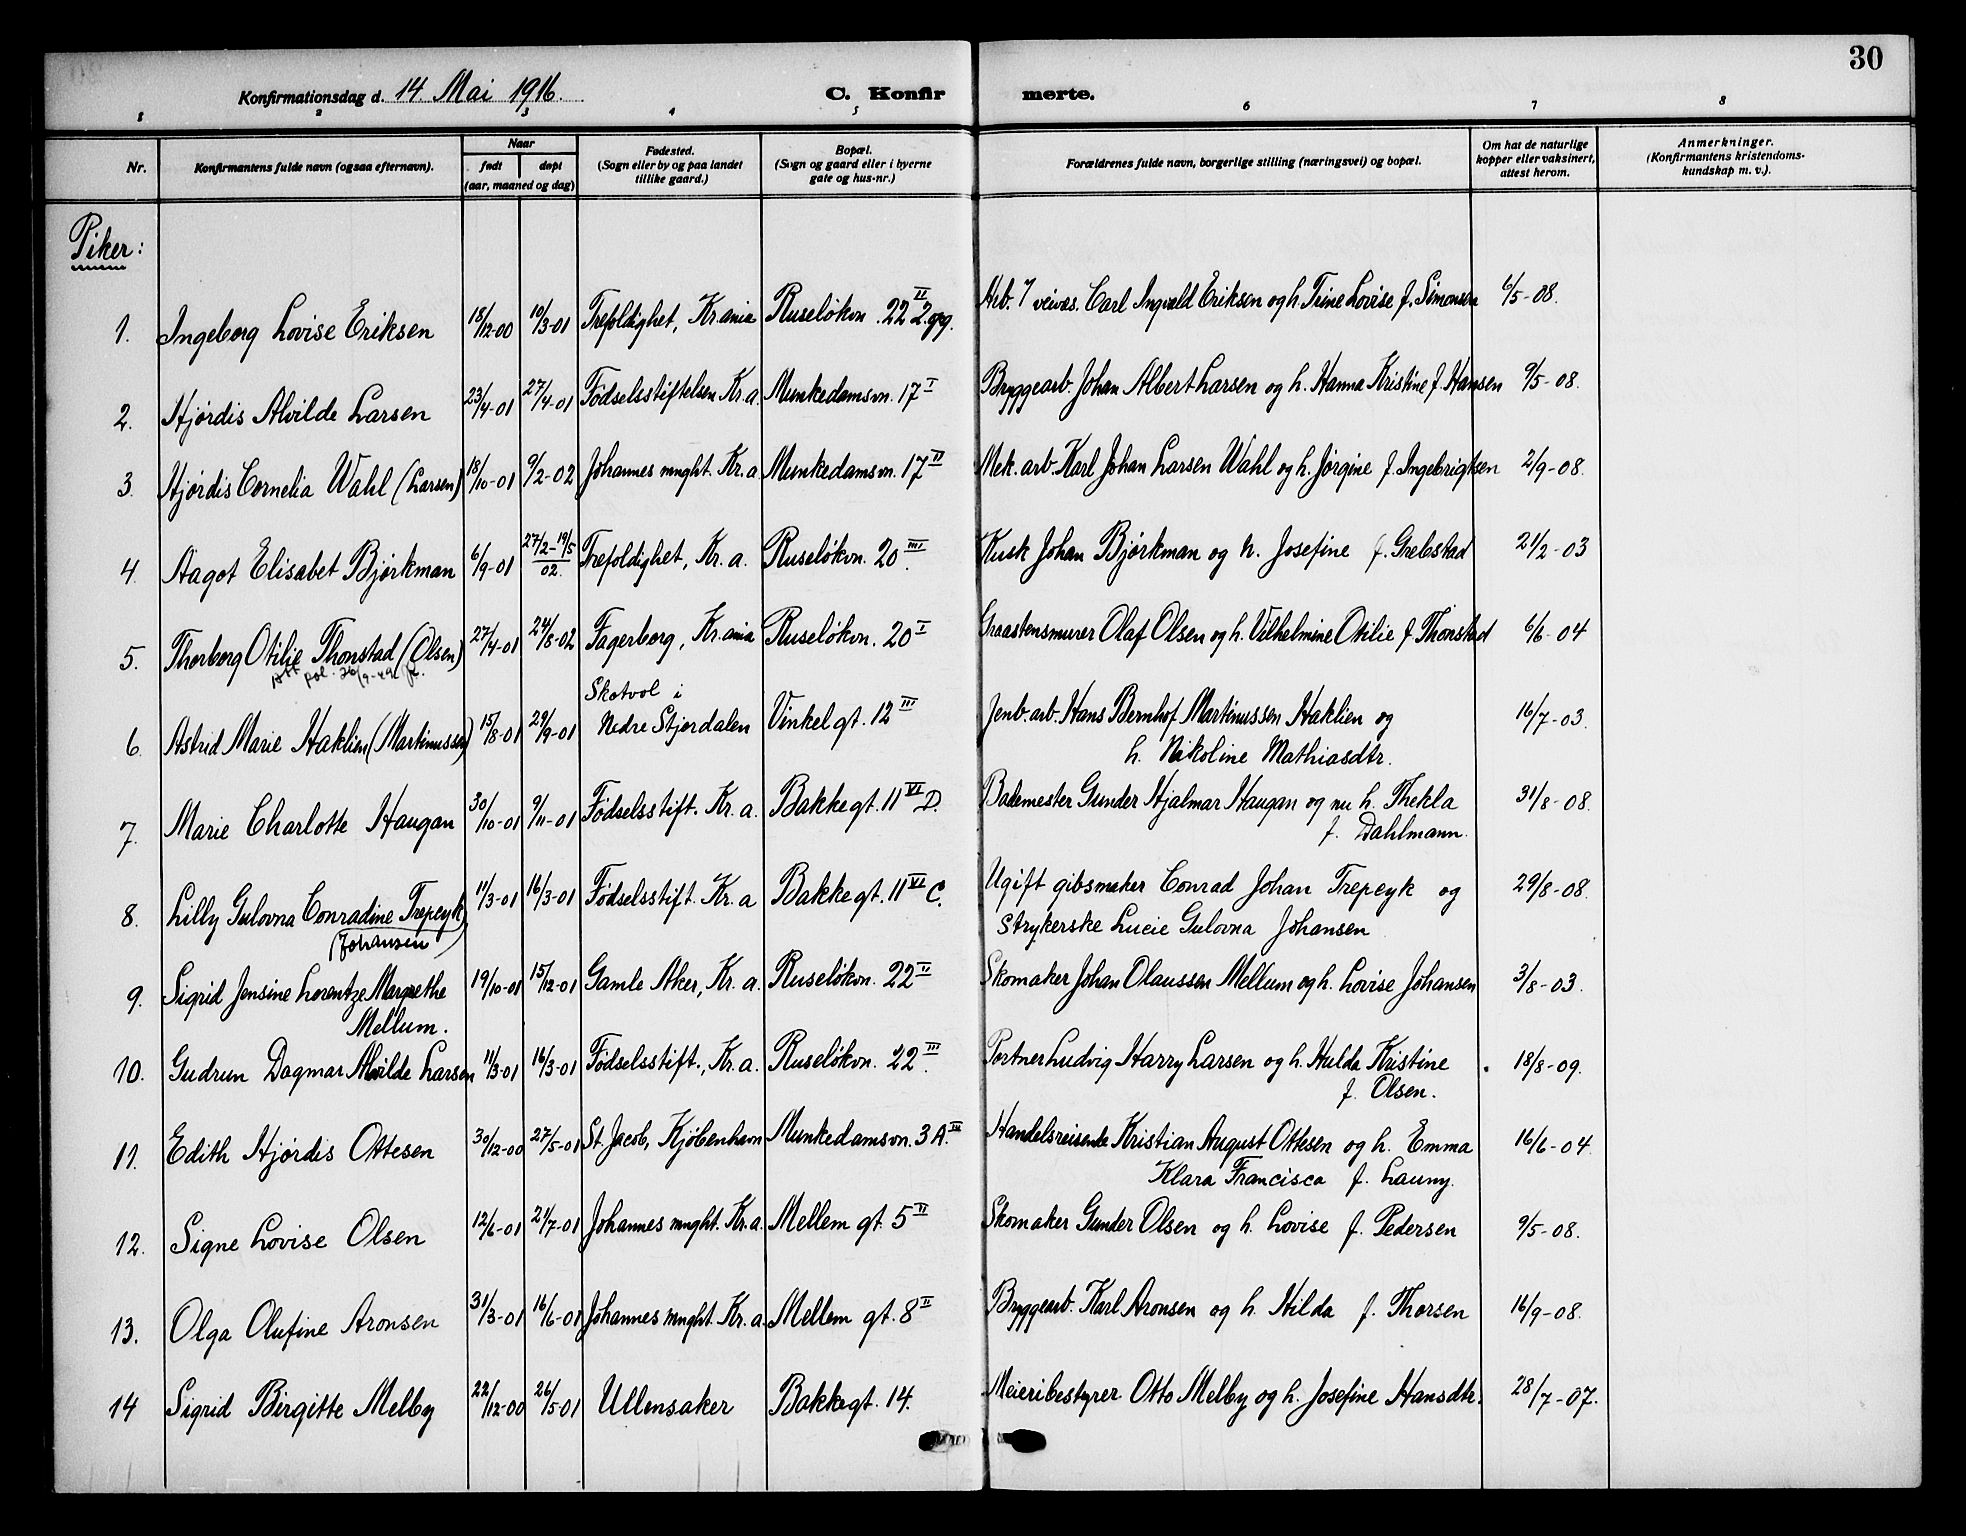 30
Konfirmationsdag d. 14 Mai 1916. C. Konfir merte.
1 2 3 4 5 6 7 8
Nr. Konfirmantens fulde navn (ogsaa efternavn). Naar født døpt (aar, maaned og dag) Fødested. (Sogn eller by og paa landet tillike gaard.) Bopæl. (Sogn og gaard eller i byerne gate og hus-nr.) Forældrenes fulde navn, borgerlige stilling (næringsvei) og bopæl. Om hat de naturlige kopper eller vaksinert, attest herom. Anmerkninger. (Konfirmantens kristendoms-kundskap m. v.).
Piker:
1. Ingeborg Lovise Eriksen 18/12-00 10/3-01 Trefoldighet, Kr.ania Ruseløkvn. 22 II 2. opg. Arb. v veivæs. Carl Ingvald Eriksen og h. Trine Lovise f. Simonsen 6/5-08.
2. Hjørdis Alvilde Larsen 23/4-01 27/4-01 Fødselsstiftelsen Kr.a. Munkedamsvn. 17 I Bryggearb. Johan Albert Larsen og h. Hanna Kristine f. Hansen 9/5-08.
3. Hjørdis Cornelia Wahl (Larsen) 18/10-01 9/2-02 Johannes mnght. Kr.a. Munkedamsvn. 17 II Mek. arb. Karl Johan Larsen Wahl og h. Jørgine f. Ingebrigtsen 2/9-08.
4. Aagot Elisabet Bjørkman 6/9-01 27/2-19/5 02. Trefoldighet, Kr. a. Ruseløkvn. 20 III Kusk Johan Bjørkman og h. Josefine f. Grebstad 21/2-03
5. Thorborg Otilie Thonstad (Olsen) 27/4-01 24/8-02 Fagerborg, Kr.ania Ruseløkvn. 20 I Graastensmurer Olaf Olsen og h. Vilhelmine Otilie f. Thonstad 6/6-04
pol. 26/9-49
6. Astrid Marie Haklien (Martinussen) 15/8-01 29/9-01 Skatvol i Nedre Stjørdalen Vinkelgt. 12 III Jenb. arb. Hans Bernhof Martinussen Haklien og 16/7-03.
h. Nikoline Mathiasdtr.
7. Marie Charlotte Haugan 30/10-01 9/11-01 Fødselsstift. Kr. a. Bakkegt. 11 VI D. Bademester Gunder Hjalmar Haugan og nu h. Thekla 31/8-08.
f. Dahlmann.
8. Lilly Gulovna Conradine Trepeyk 11/3-01 16/3-01 Fødselsstift. Kr. a Bakkegt. 11 VI C. Ugift gibsmaker Conrad Johan Trepeyk og 29/8-08.
(Johansen) Strykerske Lucie Gulovna Johansen
9. Sigrid Jensine Lorentze Margrethe 19/10-01 15/12-01 Gamle Aker, Kr. a. Ruseløkvn. 22 II Skomaker Johan Olaussen Mellum og h. Lovise Johansen 3/8-03.
Mellum.
10. Gudrun Dagmar Alvilde Larsen 11/3-01 16/3-01 Fødselsstift., Kr. a. Ruseløkvn. 22 III Portner Ludvig Harry Larsen og h. Hulda Kristine 18/8-09.
f. Olsen.
11. Edith Hjørdis Ottesen 30/12-00 27/5-01 St. Jacob, Kjøbenhavn Munkedamsvn. 3 A. III Handelsreisende Kristian August Ottesen og h. Emma 16/6-04.
Klara Francisca f. Launy.
12. Signe Lovise Olsen 12/6-01 21/7-01 Johannes mnght. Kr.a. Mellem gt. 5 II Skomaker Gunder Olsen og h. Lovise f. Pedersen 9/5-08.
13. Olga Olufine Aronsen 31/3-01 16/6-01 Johannes mnght. Kr. a. Mellem gt. 8 II Bryggearb. Karl Aronsen og h. Hilda f. Thorsen 16/9-08.
14 Sigrid Birgitte Melby 22/12-00 26/5-01 Ullensaker Bakkegt. 14. Meieribestyrer Otto Melby og h. Josefine Hansdtr. 28/7-07.